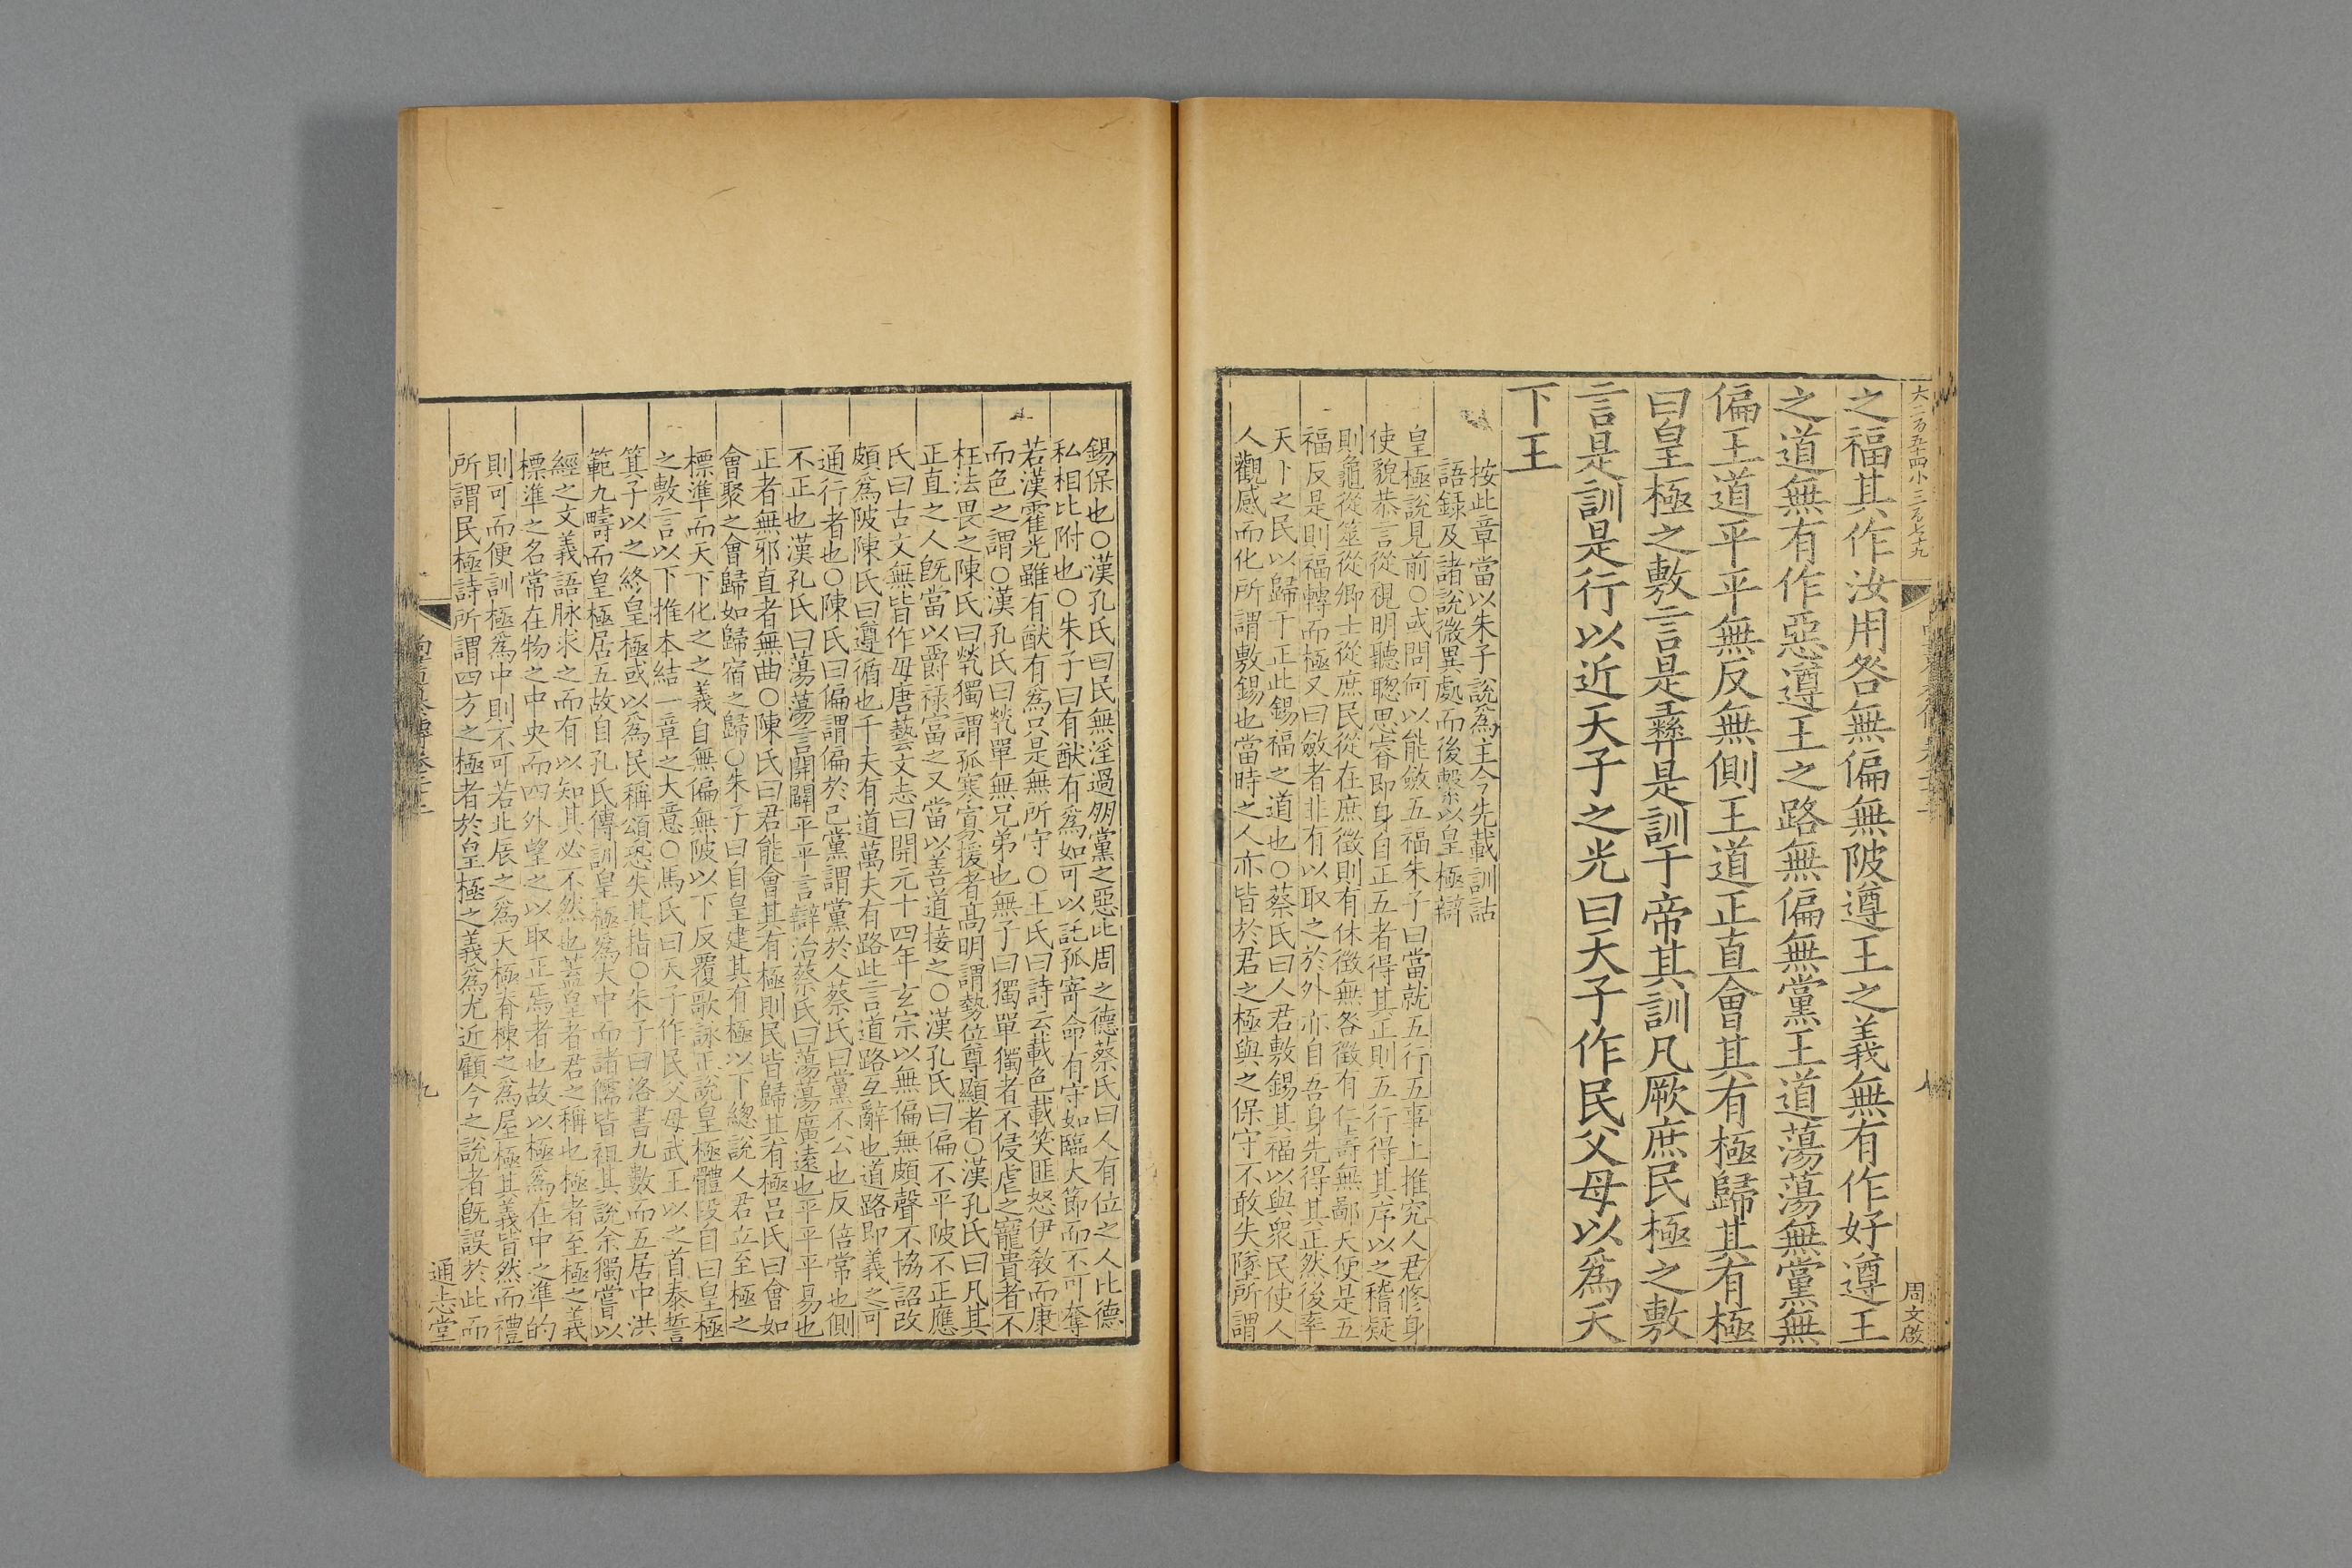 大二百五十四小三百七十九
周文啟
之福其作汝用咎無偏無陂遵王之義無有作好遵王
之道無有作惡遵王之路無偏無黨王道蕩蕩無黨無
偏王道平平無反無側王道正直會其有極歸其有極
曰皇極之敷言是彝是訓于帝其訓凡厥庶民極之敷
言是訓是行以近天子之光曰天子作民父母以爲天
下王
按此章當以朱子說爲主今先載訓詁
語錄及諸說微異處而後繫以皇極辯
皇極說見前○或問何以能斂五福朱子曰當就五行五事上推究人君修身
使貌恭言從視明聽聰思睿即身自正五者得其正則五行得其序以之稽疑
則龜從筮從卿士從庶民從在庶徵則有休徵無咎徵有仁壽無鄙夭便是五
福反是則福轉而極又曰斂者非有以取之於外亦自吾身先得其正然後率
天下之民以歸于正此錫福之道也○蔡氏曰人君敷錫其福以與衆民使人
人觀感而化所謂敷錫也當時之人亦皆於君之極與之保守不敢失墜所謂
錫保也○漢孔氏曰民無淫過朋黨之惡比周之德蔡氏曰人有位之人比德
私相比附也○朱子曰有猷有爲如可以託孤寄命有守如臨大節而不可奪
若漢霍光雖有猷有爲只是無所守○王氏曰詩云載色載笑匪怒伊教而康
而色之謂○漢孔氏曰煢單無兄弟也無子曰獨單獨者不侵虐之寵貴者不
枉法畏之陳氏曰煢獨謂孤寒寡援者高明謂勢位尊顯者○漢孔氏曰凡其
正直之人旣當以爵祿富之又當以善道接之○漢孔氏曰偏不平陂不正應
氏曰古文無皆作毋唐藝文志曰開元十四年玄宗以無偏無頗聲不協詔改
頗爲陂陳氏曰遵循也千夫有道萬夫有路此言道路互辭也道路即義之可
通行者也○陳氏曰偏謂偏於己黨謂黨於人蔡氏曰黨不公也反倍常也側
不正也漢孔氏曰蕩蕩言開闢平平言辯治蔡氏曰蕩蕩廣遠也平平平易也
正者無邪直者無曲○陳氏曰君能會其有極則民皆歸其有極呂氏曰會如
會聚之會歸如歸宿之歸○朱子曰自皇建其有極以下總說人君立至極之
標準而天下化之之義自無偏無陂以下反覆歌詠正說皇極體段自曰皇極
之敷言以下推本結一章之大意○馬氏曰天子作民父母武王以之首泰誓
箕子以之終皇極或以爲民稱頌恐失其指○朱子曰洛書九數而五居中洪
範九疇而皇極居五故自孔氏傳訓皇極爲大中而諸儒皆祖其說余獨嘗以
經之文義語脉求之而有以知其必不然也葢皇者君之稱也極者至極之義
標準之名常在物之中央而四外望之以取正焉者也故以極爲在中之準的
則可而便訓極爲中則不可若北辰之爲天極脊棟之爲屋極其義皆然而禮
所謂民極詩所謂四方之極者於皇極之義爲尤近顧今之說者旣誤於此而
九
通志堂